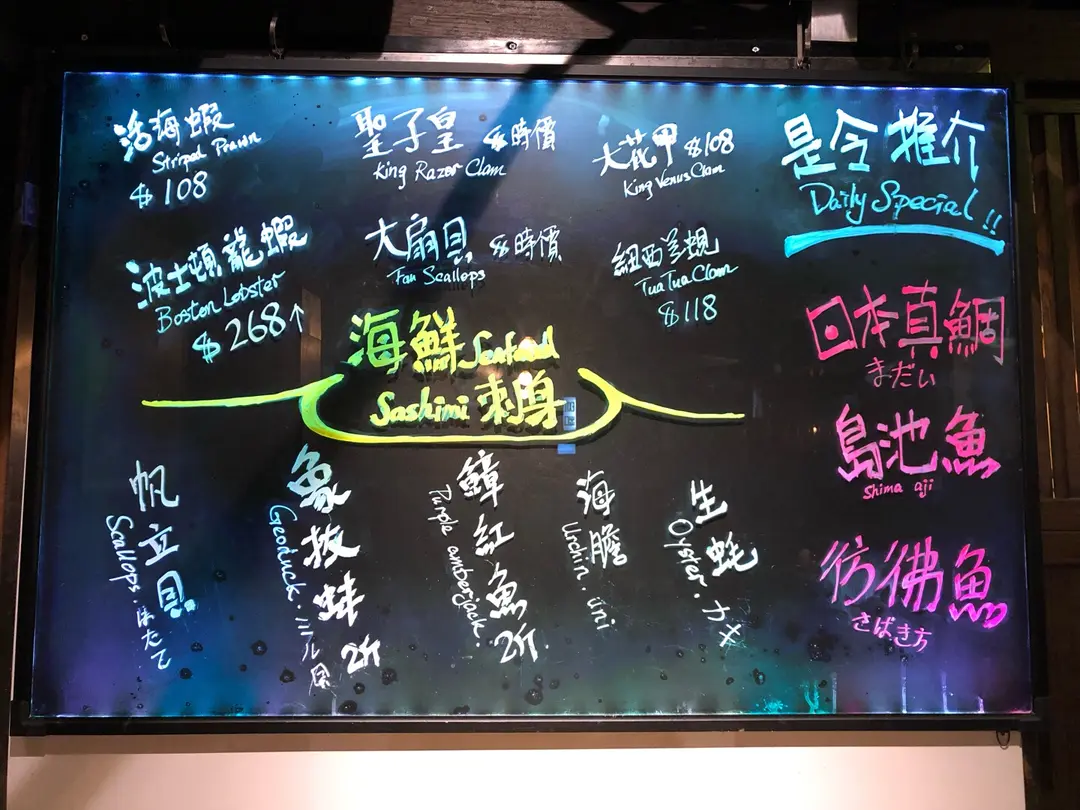 活海蝦
Striped Prawn
$108
聖子皇 $時價
King Razor Clam
大花甲 $108
King Venus Clam
是令推介
Daily Special!!
波士頓龍蝦
Boston Lobster
$268↑
大扇貝 $時價
Fan Scallops
紐西蘭蜆
TuaTua Clam
$118
海鮮 Seafood
Sashimi 刺身
日本真鯛
まだい
島池魚
Shima aji
彷彿魚
さばき方
帆立貝
Scallops・ほたて
象拔蚌 2斤
Geoduck・ミル貝
鱆紅魚 2斤
Purple amberjack.
海膽
Urchin. uni
生蚝
Oyster・カキ